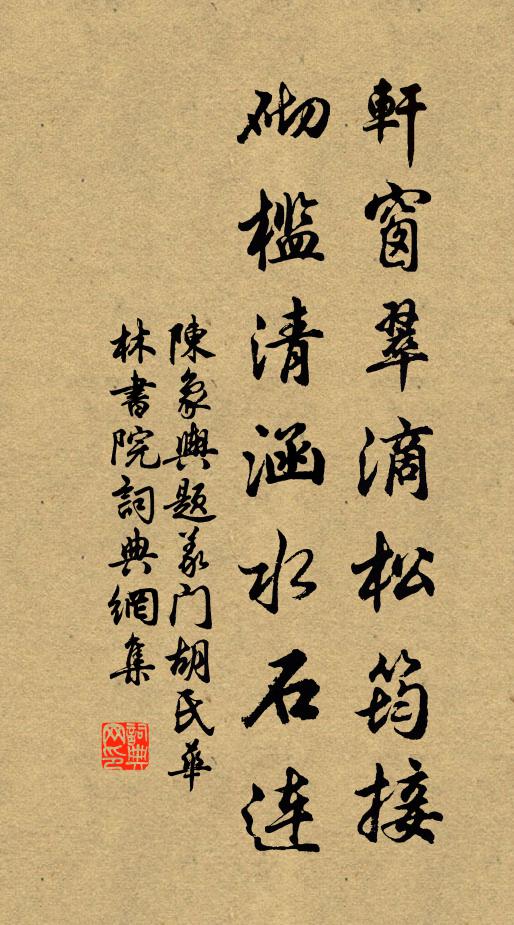 軒窗翠滴松筠接
砌檻清涵水石連
陳象輿題義门胡氏華
林書院詞典網集
詞典
网印